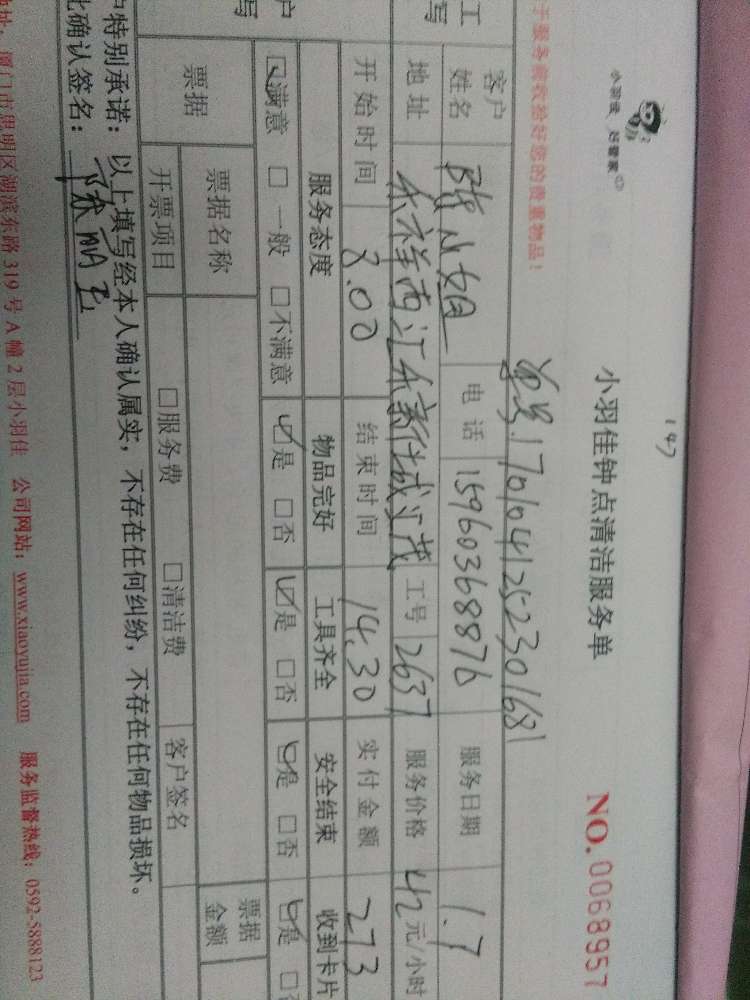 147
小羽佳 好管家
小羽佳钟点清洁服务单
NO. 0068957
于服务前收拾好您的贵重物品!
单号.1701041252301681
工
写
客户
姓名
陈小姐
电话
15960368876
服务日期
1.7
地址
禾祥西汇禾新城汇茂
工号
2637
服务价格
42元/小时
开始时间
8.00
结束时间
14.30
实付金额
273
户
写
服务态度
物品完好
工具齐全
安全结束
收到卡片
☑满意 □一般 □不满意
☑是 □否
☑是 □否
☑是 □否
☑是 □否
票据
票据名称
票据
金额
开票项目
□服务费
□清洁费
客户签名
户特别承诺:以上填写经本人确认属实,不存在任何纠纷,不存在任何物品损坏。
此确认签名:
地址:厦门市思明区湖滨东路319号A幢2层小羽佳 公司网站:www.xiaoyujia.com 服务监督热线:0592-5888123